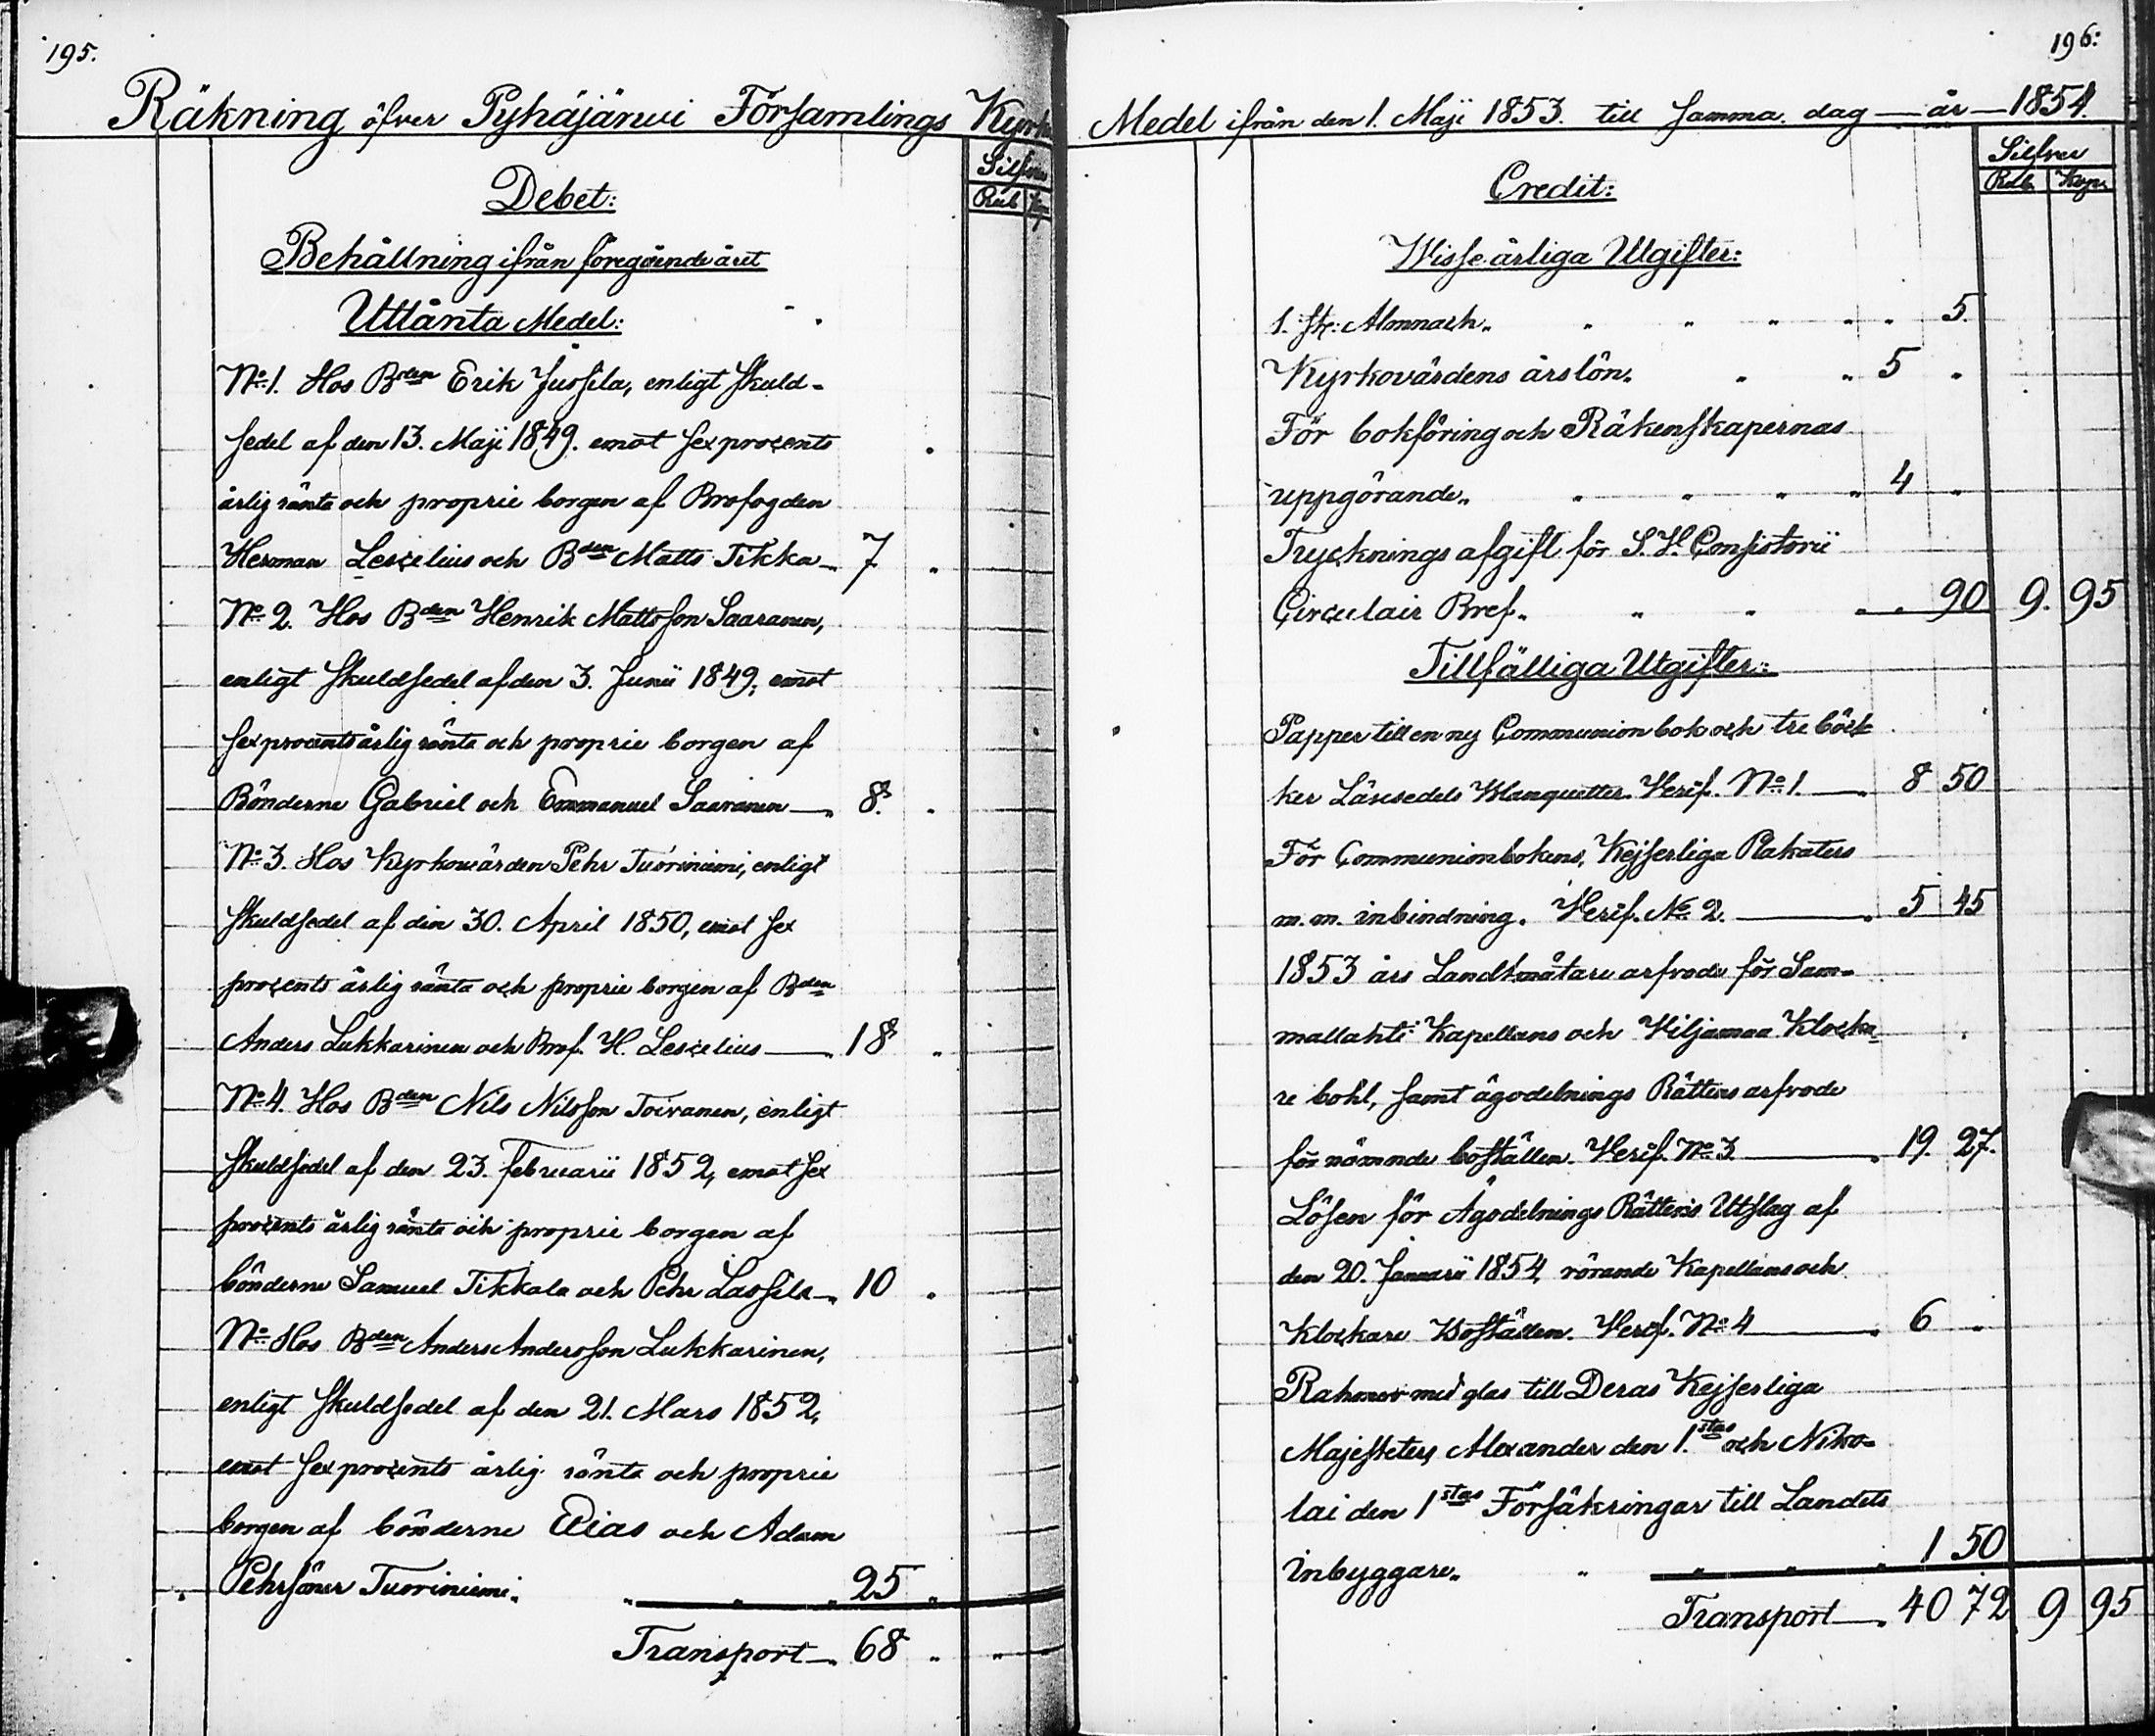 195.
Räkning öfver Pyhäjärwi Församlings Kyrk
Silfver
Rub Kop
Debet:
Behållning ifrån föregående året
Utlånta Medel:
No 1. Hos Bden Erik Jussila, enligt skuld-
sedel af den 13. Maji 1849. emot sex procents
årlig ränta och proprie borgen af Brofogden
Herman Lescelius och Bden Matts Tikka 7 "
No 2. Hos Bden Henrik Mattsson Saaranen,
enligt skuldsedel af den 3. Junii 1849, emot
sex procents årlig ränta och proprie borgen af
Bönderne Gabriel och Emmanuel Saaranen 8. "
No 3. Hos Kyrkowärden Pehr Tuoriniemi, enligt
skuldsedel af den 30. April 1850, emot sex
procents årlig ränta och proprie borgen af Bden
Anders Lukkarinen och Brof. H. Lescelius 18 "
No 4. Hos Bden Nils Nilsson Toivanen, enligt
skuldsedel af den 23. Februarii 1852, emot sex
procents årlig ränta och proprie borgen af
bönderne Samuel Tikkala och Pehr Lassila 10 "
No Hos Bden Anders Andersson Lukkarinen,
enligt skuldsedel af den 21. Mars 1852,
emot sex procents årlig ränta och proprie
borgen af bönderne Elias och Adam
Pehrsöner Tuoriniemi. " " " 25 "
Transport 68 " "
196.
Medel ifrån den 1. Maji 1853. till samma dag — år — 1854.
Silfver
Rub. Kop.
Credit:
Wisse årliga Utgifter:
1. st: Almnach. " " " " " 5.
Kyrkovärdens årslön. " " 5 "
För bokföring och Räkenskapernas
uppgörande. " " " " 4 "
Trycknings afgift för S. H. Consistorii
Circulair Bref. " " " 90 9. 95
Tillfälliga Utgifter:
Papper till en ny Communion bok och tre böck
ker Läsesedels Blanquetter. Verif. No 1. 8 50
För Communionbokens, Kejserliga Plakaters
m.m. inbindning. Verif. No 2. 5 45
1853 års Landtmätare arfvode för Sam-
mallahti Kapellans och Viljamaa Klocka-
re bohl, samt ägodelnings Rättens arfvode
för nämnde boställen. Verif. No 3 19. 27.
Lösen för Ägodelnings Rättens Utslag af
den 20. Januarii 1854, rörande Kapellans och
Klockare Boställen. Verif. No 4 6 "
Rahmar med glas till Deras Kejserliga
Majesteters Alexander den 1.stas och Niko-
lai den 1stas Försäkringar till Landets
inbyggare. " " " " 1 50
Transport 40 72 9 95